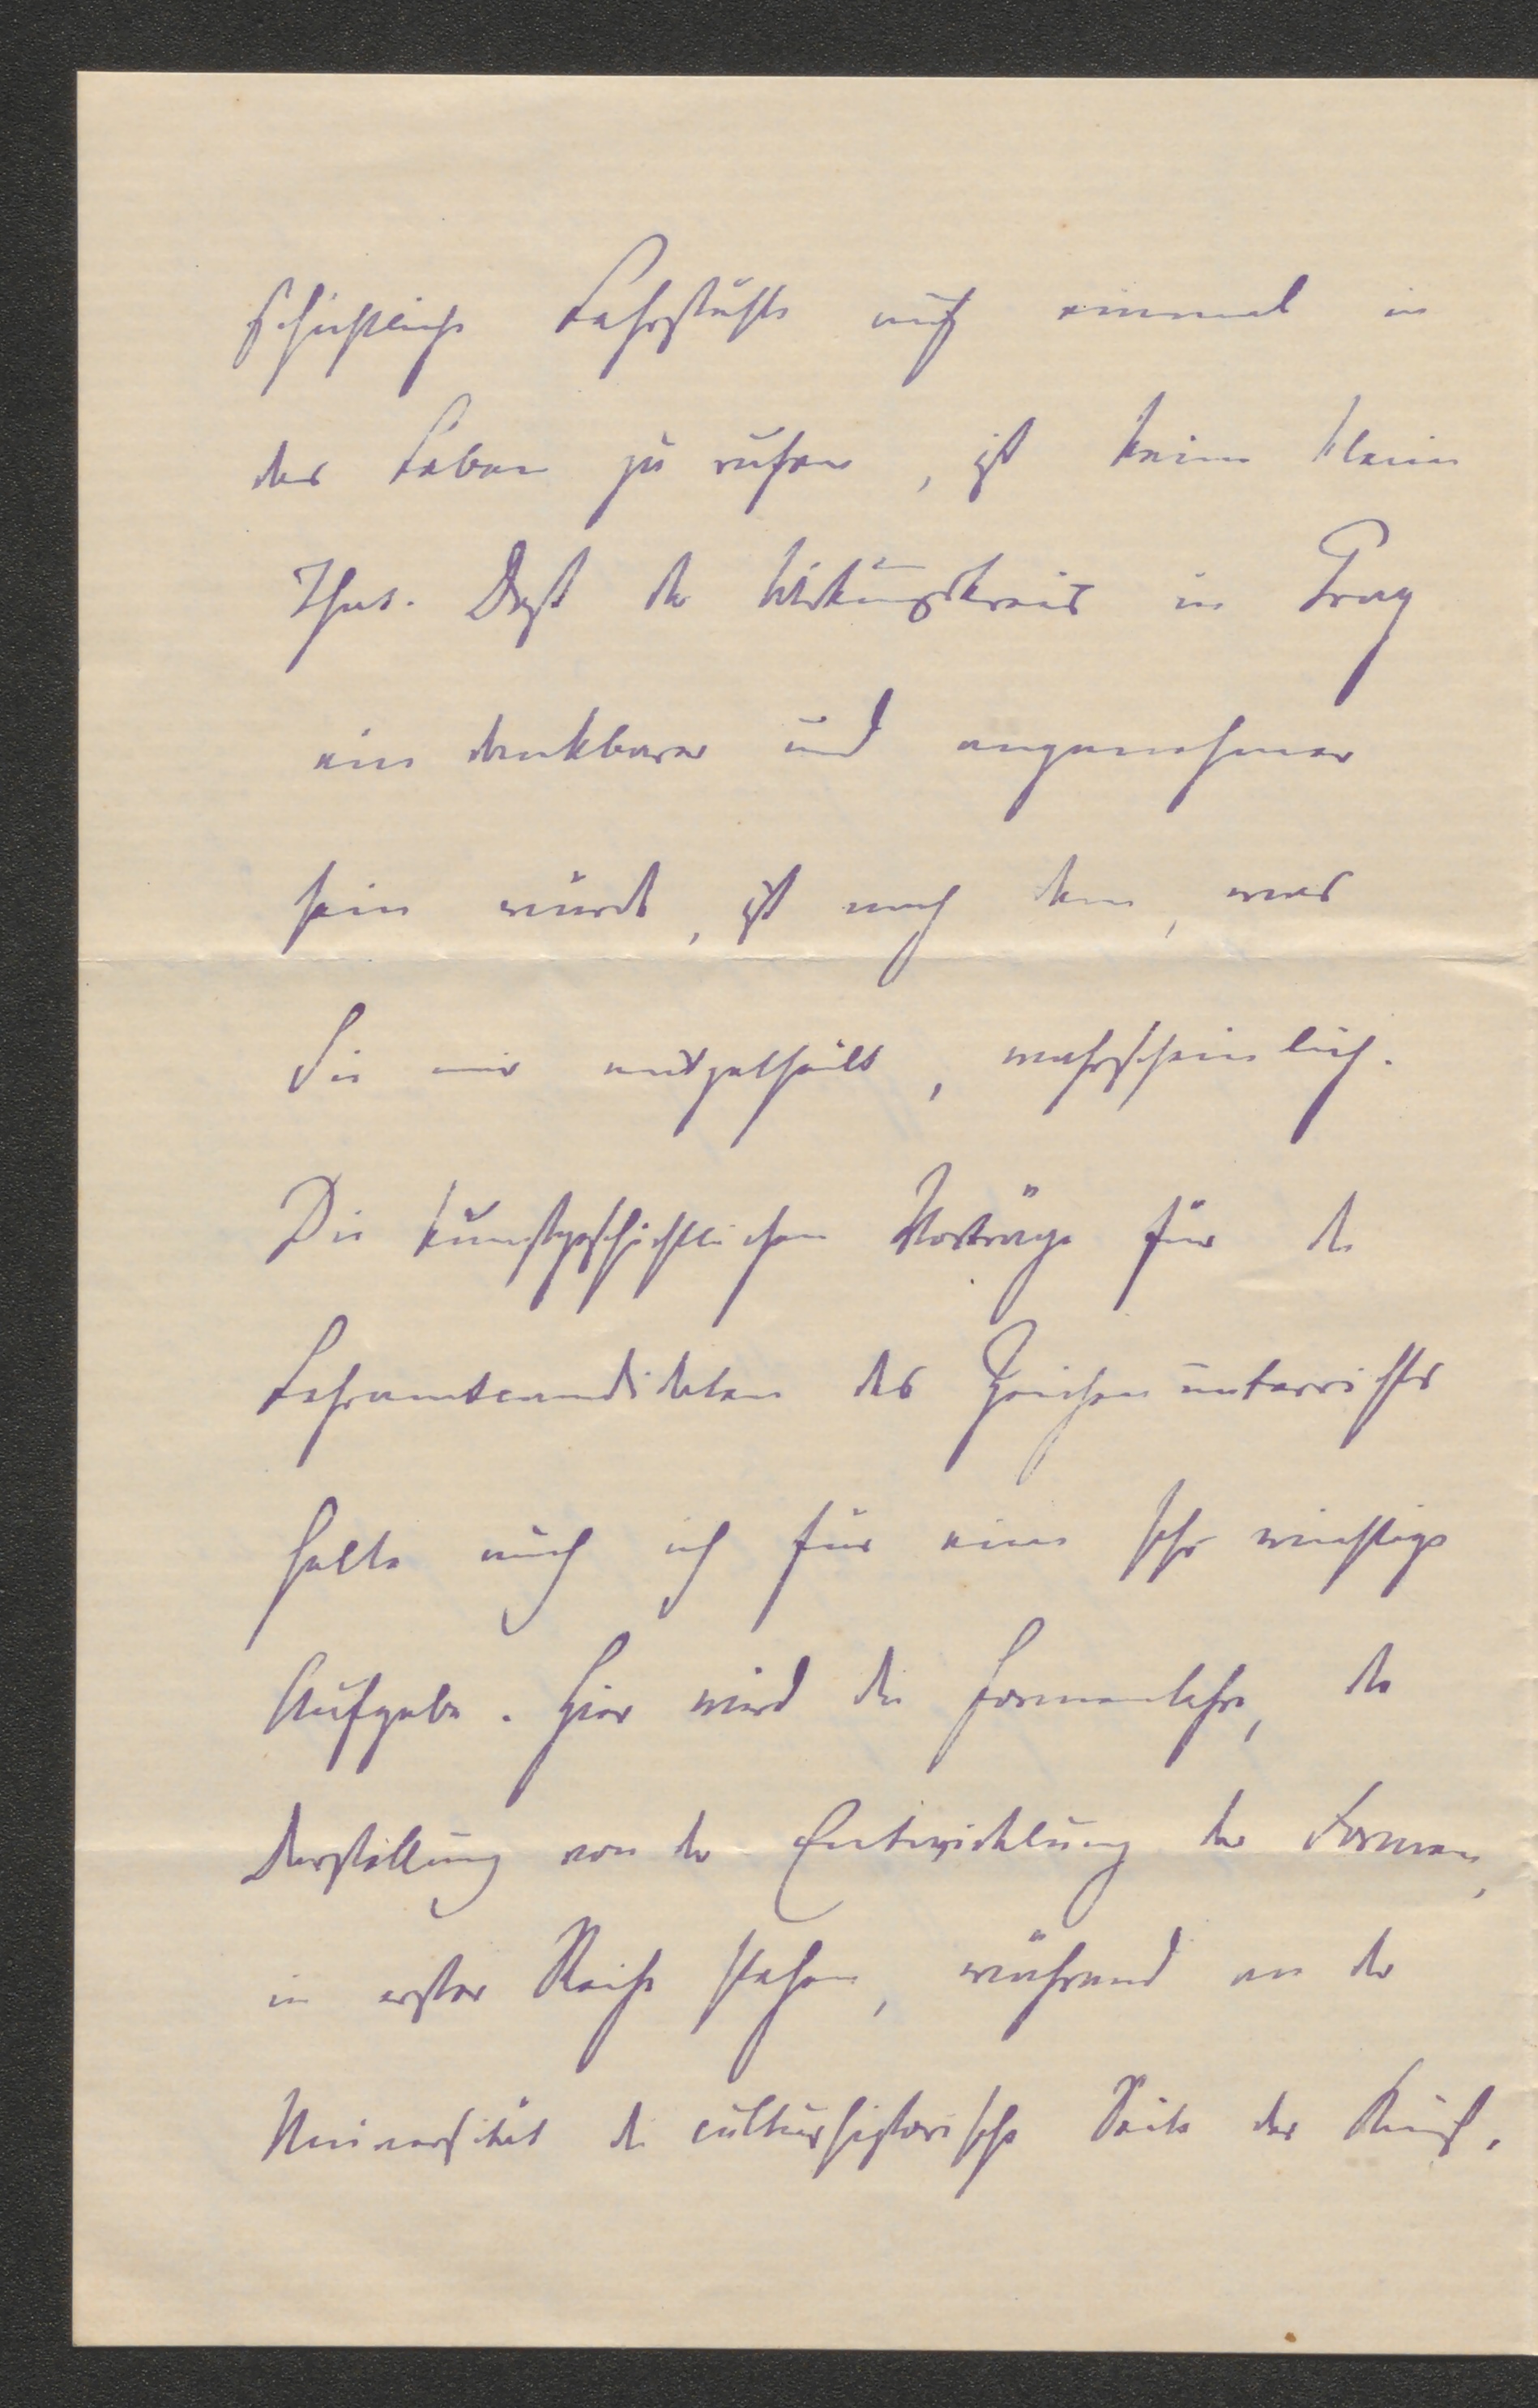 schichtliche Lehrstühle auf einmal in
das Leben zu rufen, ist keine kleine
That. Daß der Wirkungskreis in Prag
ein dankbarer und angenehmer
sein würde, ist nach dem, was
Sie mir mitgetheilt, wahrscheinlich.
Die kunstgeschichtlichen Vorträge für die
Lehramtscandidaten des Zeichenunterrichts
halte auch ich für eine sehr wichtige
Aufgabe. Hier wird die Formenlehre, die
Darstellung von der Entwicklung der Formen,
in erster Reihe stehen, während an der
Universität die culturhistorische Seite der Kunst,